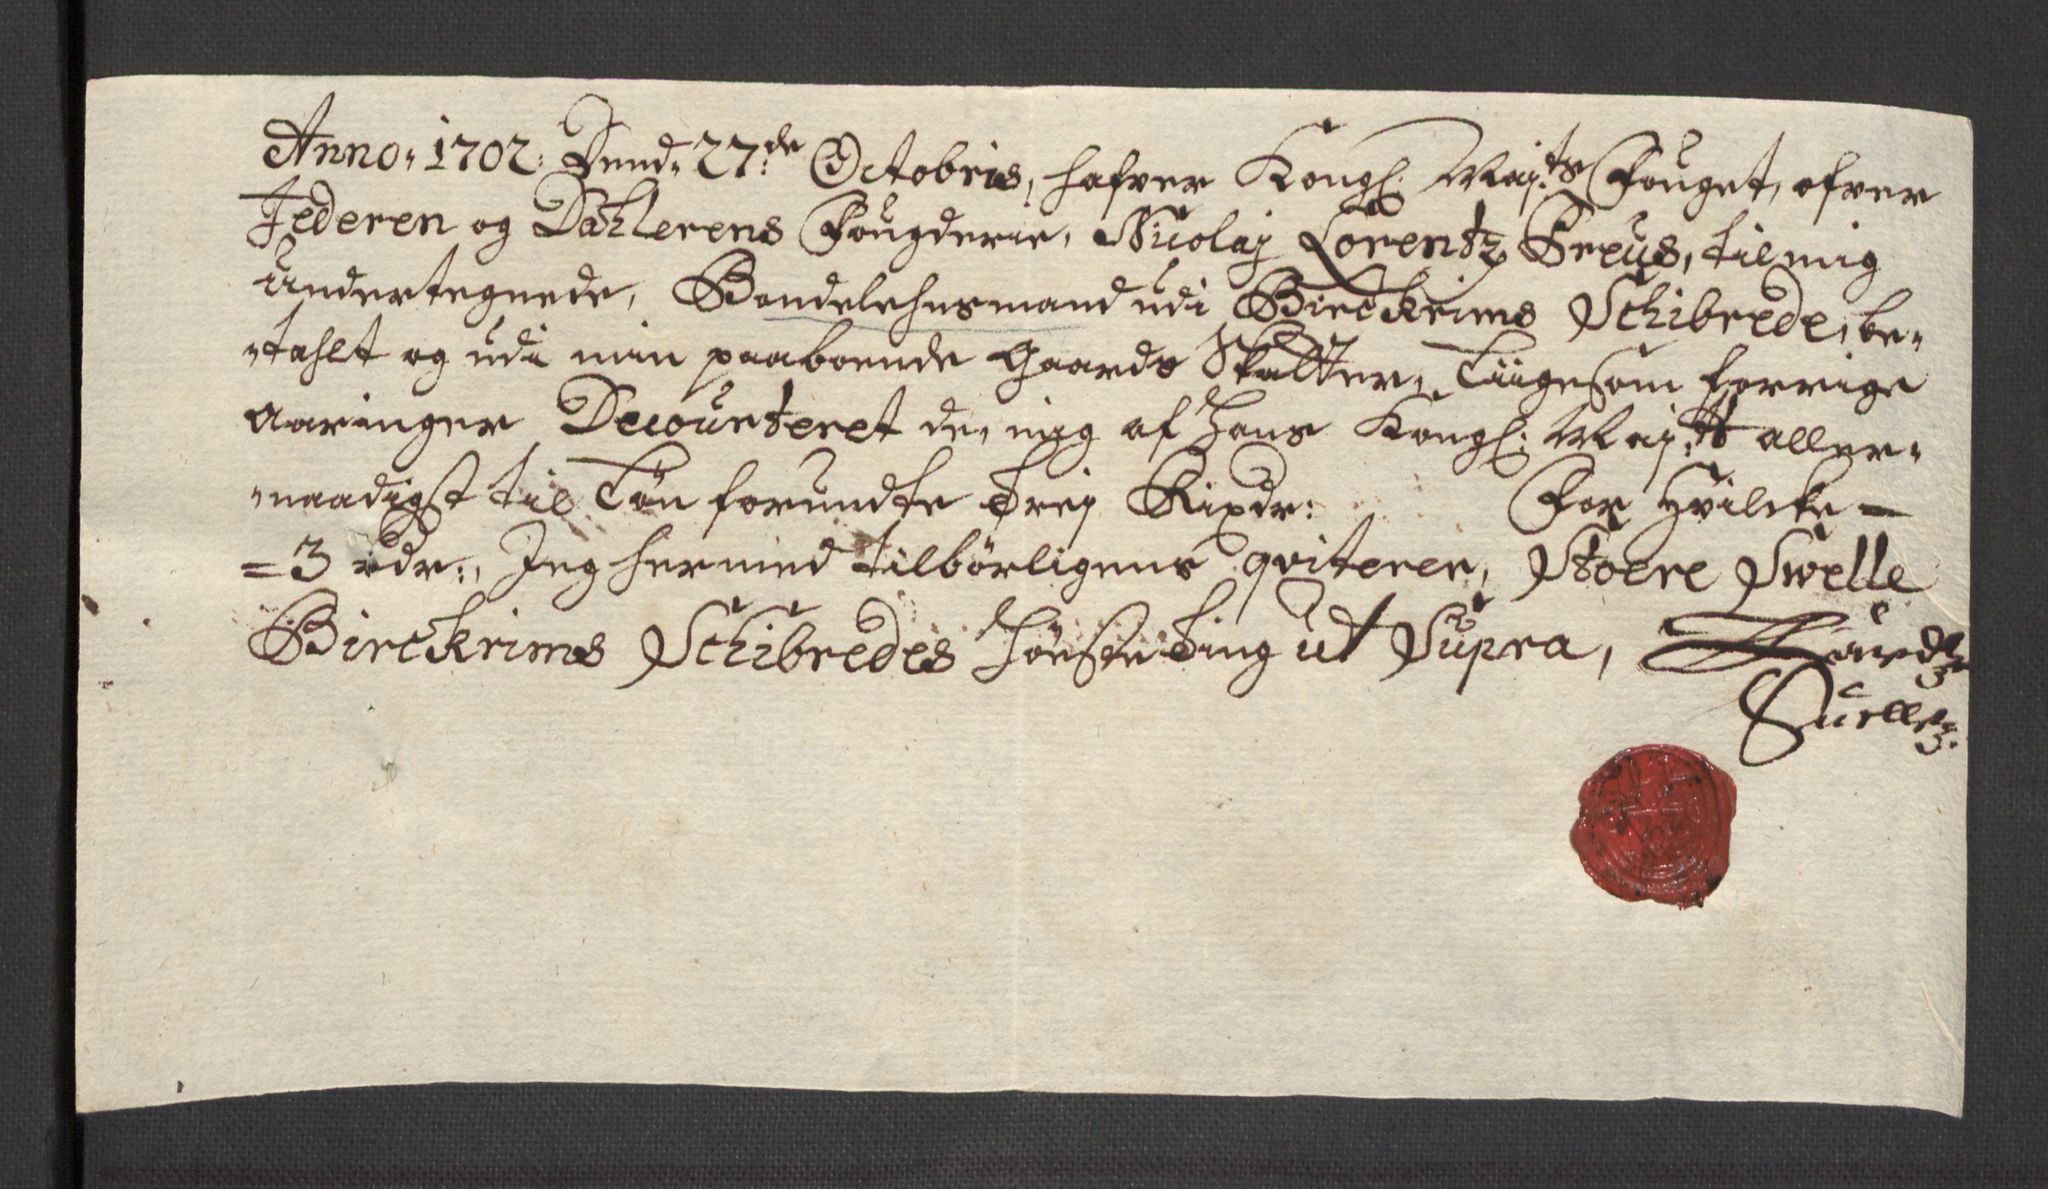 Anno. 1702. Dend. 27.de Octobris, hafver Kongl. Maj.ts Fouget, ofver
Jederen og Dahlerens Fougderie, Nicolaj Lorentz Preus, til mig
Undertegnede, Bondelehnsmand udi Birckrims Schibrede, be„
„tahlt og udi min paaboende Gaards Skatter, Liigesom forrige
Aaringer Decourteret de, mig af Hans Kongl. Maj.tt aller„
„naadigst til Løn forundte Trej Rixdr: For Hvilcke =
= 3 rdr:, Jeg hermed tilbørligens qviterer, Stoere Swelle
Birckrims Schibredes Høste Ting ut Supra,
Suelle